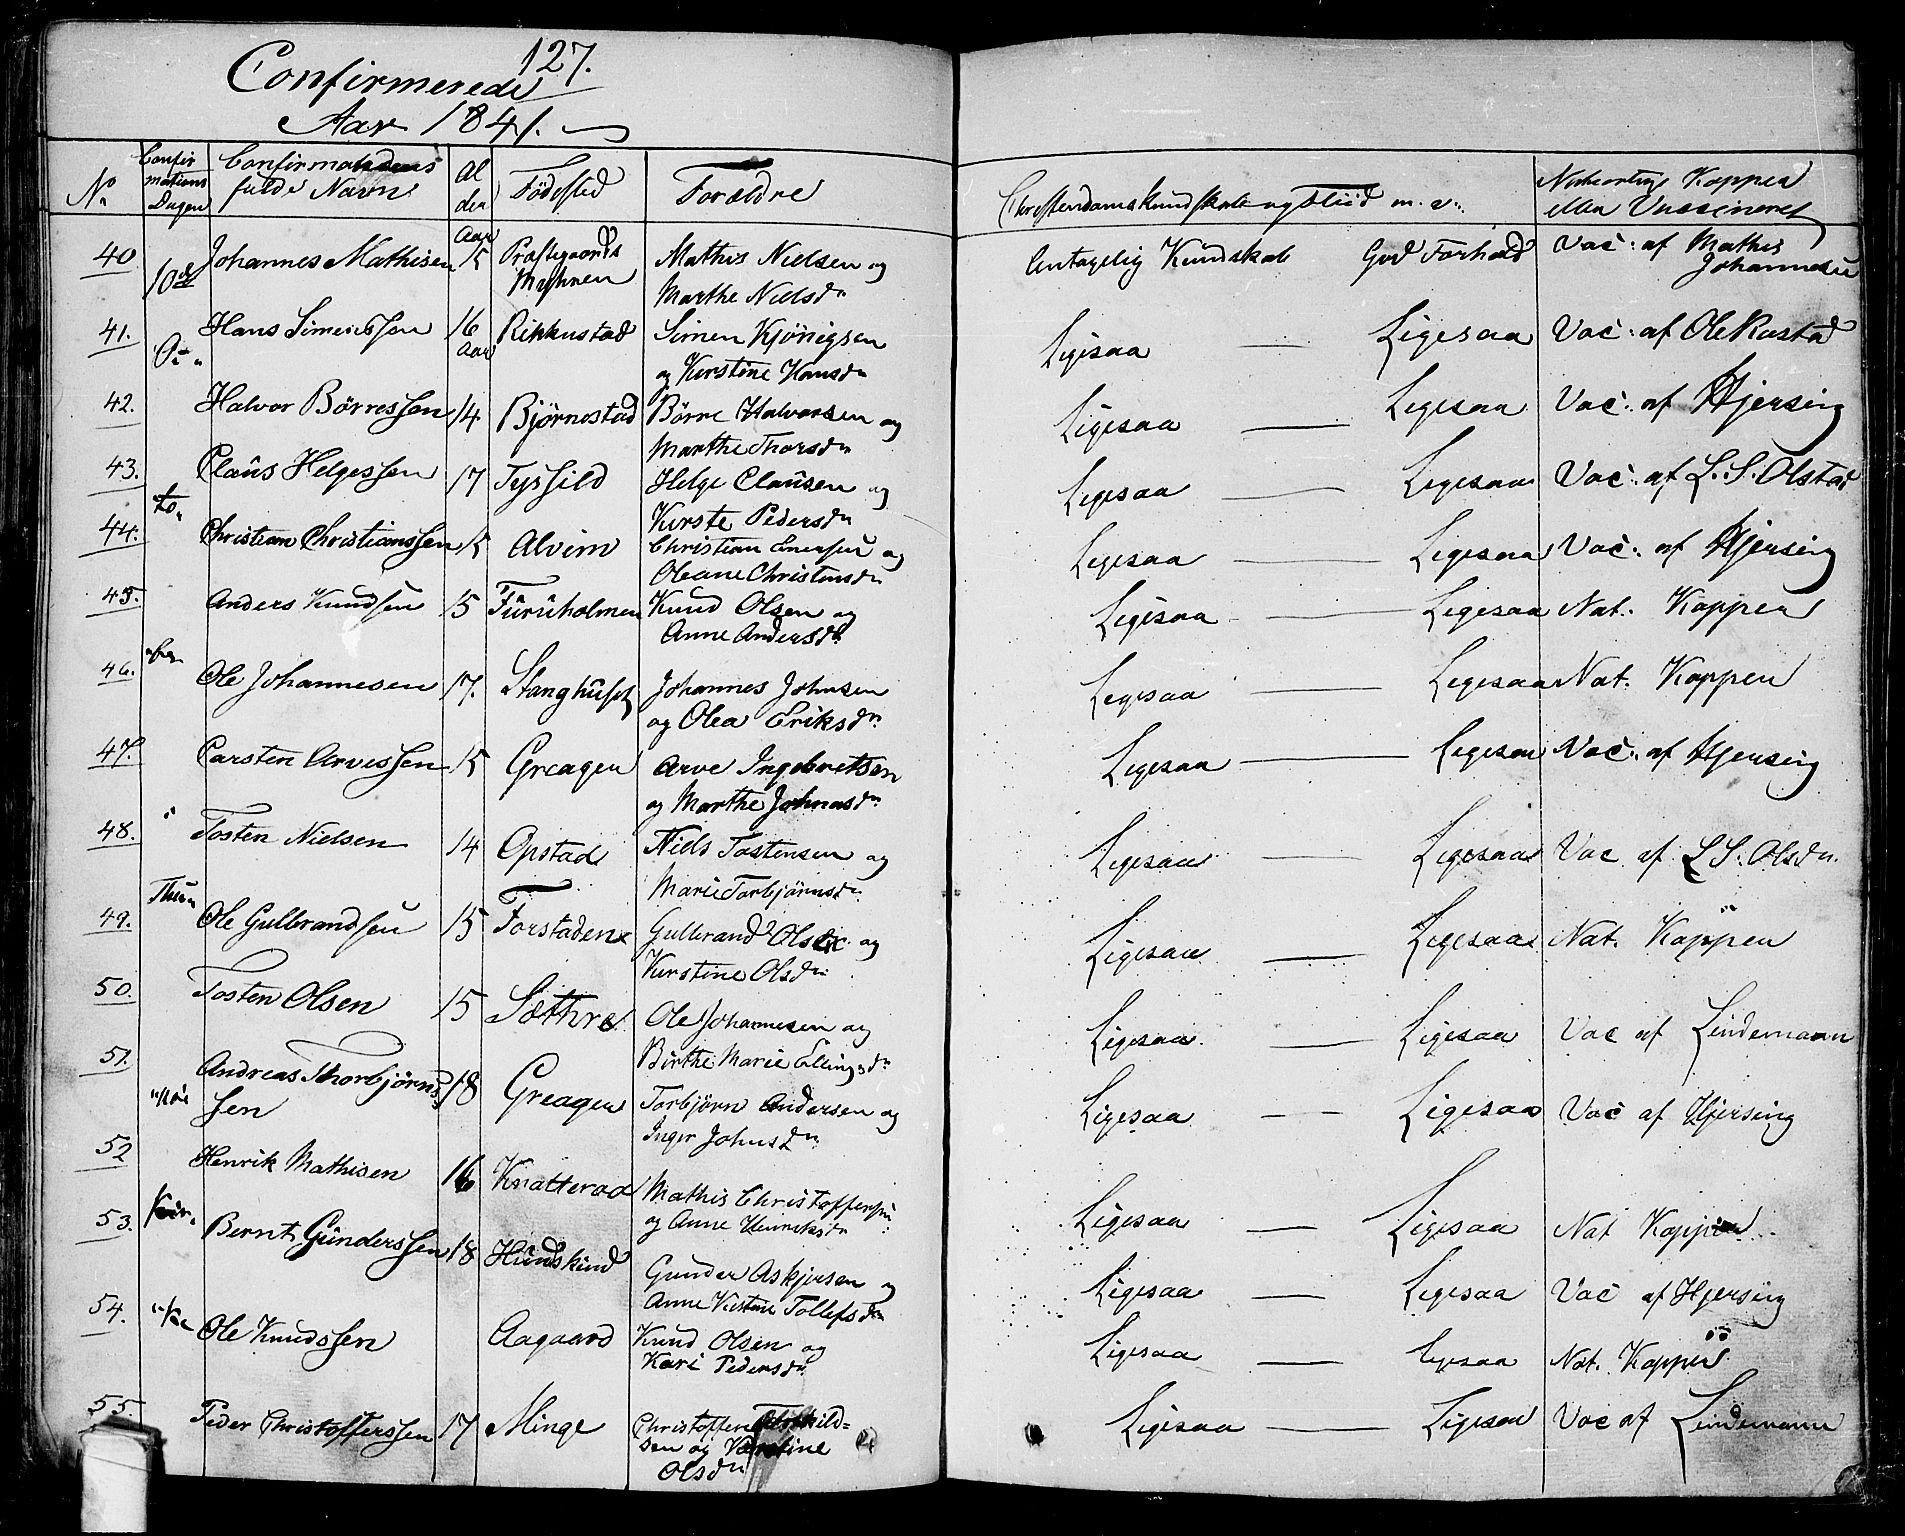 127.
Confirmerede
Aar 1841.
No
Confirmations Dagen
Confirmandens fulde Navn
Alder
Fødested
Forældre
Christendomskundskab og Fliid m. v.
Naturlige Kopper
eller Vaccineret
40 10de Johannes Mathisen 15 Aar Præstegaards Mathis Nielsen og Antagelig Kundskab God Forhold Vac: af Mathis
Marthe Nielsdr Johannesen
41. Hans Simenssen 16 Aar Rikkustad Simen Kjönigsen Ligesaa — Ligesaa Vac: af Ole Rustad
og Kirstine Hansdr
42. Halvor Börressen 14 Bjørnestad Börre Halvorsen og Ligesaa — Ligesaa Vac: af Hjersing
Marthe Thorsdr
43. Claus Helgessen 17 Tyssild Helge Clausen og Ligesaa — Ligesaa Vac: af L. S. Olstad
to- Kirste Pedersdr
44. Christian Christianssen 15 Alvim Christian Enersen og Ligesaa — Ligesaa Vac: af Hjersing
Oleane Christensdr
45. Anders Knudsen 15 Furuholmen Knud Olsen og Ligesaa — Ligesaa Nat. Kopper
Anne Andersdr
46. Ole Johannesen 17. Stanghuset Johannes Johnsen Ligesaa — Ligesaa Nat. Kopper
og Olea Eriksdr
47. Carsten Arvessen 15 Greager Arve Ingebretsen Ligesaa — Ligesaa Vac: af Hjersing
og Marthe Johnasdr
48. Tosten Nielsen 14 Opstad Niels Tostensen og Ligesaa — Ligesaa Vac af L S. Olsdr.
Marie Torbjörnsdr
49. Ole Gulbrandsen 15 Torstaden Gulbrand Olsen og Ligesaa — Ligesaa Nat. Kopper
Kirstine Olsdr
50. Tosten Olsen 15 Sæthre Ole Johannesen og Ligesaa — Ligesaa Vac af Lindemann
Birthe Marie Ellingsdr
51. Andreas Thorbjörns 18 Greager Torbjörn Andersen og Ligesaa — Ligesaa Vac af Hjersing
sen Inger Johnsdr
52 Henrik Mathisen 16 Knatterød Mathis Christoffersen Ligesaa — Ligesaa Nat Kopper
og Anne Henriksdr
53. Bernt Gunderssen 18 Hundskind Gunder Askjersen og Ligesaa — Ligesaa Vac af Hjersing
Anne Kirstine Tollefsdr
54. Ole Knudssen Aagaard Knud Olsen og Ligesaa — Ligesaa Nat. Kopper
Kari Pedersdr
55. Peder Christofferssen 17 Minge Christoffer Ligesaa — Ligesaa Vac af Lindemann
sen og
Olsdr